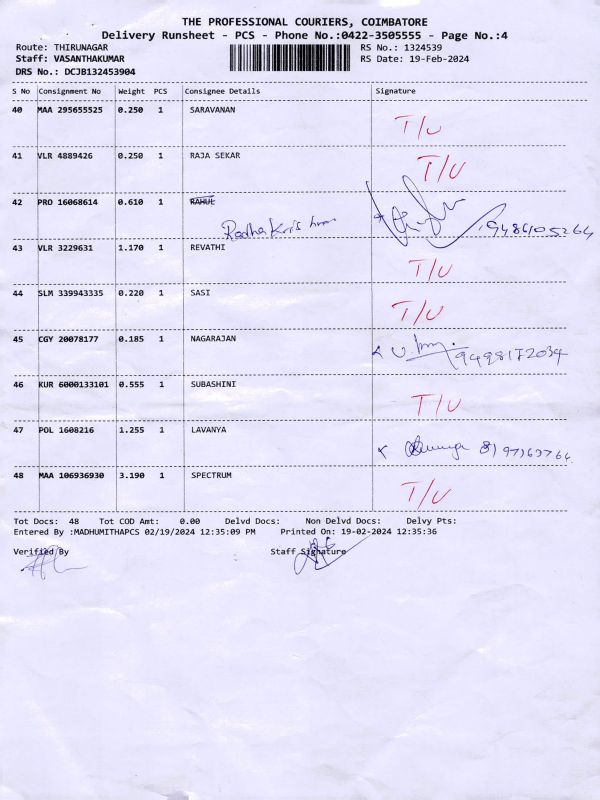 THE PROFESSIONAL COURIERS, COIMBATORE
Delivery Runsheet - PCS - Phone No.:0422-3505555 - Page No.:4
Route: THIRUNAGAR RS No.: 1324539
Staff: VASANTHAKUMAR RS Date: 19-Feb-2024
DRS No.: DCJB132453904
S No Consignment No Weight PCS Consignee Details Signature
40 MAA 295655525 0.250 1 SARAVANAN T/U
41 VLR 4889426 0.250 1 RAJA SEKAR T/U
42 PRO 16068614 0.610 1 RAHUL
Radha Krishnan 9486105264
43 VLR 3229631 1.170 1 REVATHI T/U
44 SLM 339943335 0.220 1 SASI T/U
45 CGY 20078177 0.185 1 NAGARAJAN 9498172034
46 KUR 6000133101 0.555 1 SUBASHINI T/U
47 POL 1608216 1.255 1 LAVANYA
48 MAA 106936930 3.190 1 SPECTRUM T/U
Tot Docs: 48 Tot COD Amt: 0.00 Delvd Docs: Non Delvd Docs: Delvy Pts:
Entered By :MADHUMITHAPCS 02/19/2024 12:35:09 PM Printed On: 19-02-2024 12:35:36
Verified By Staff Signature